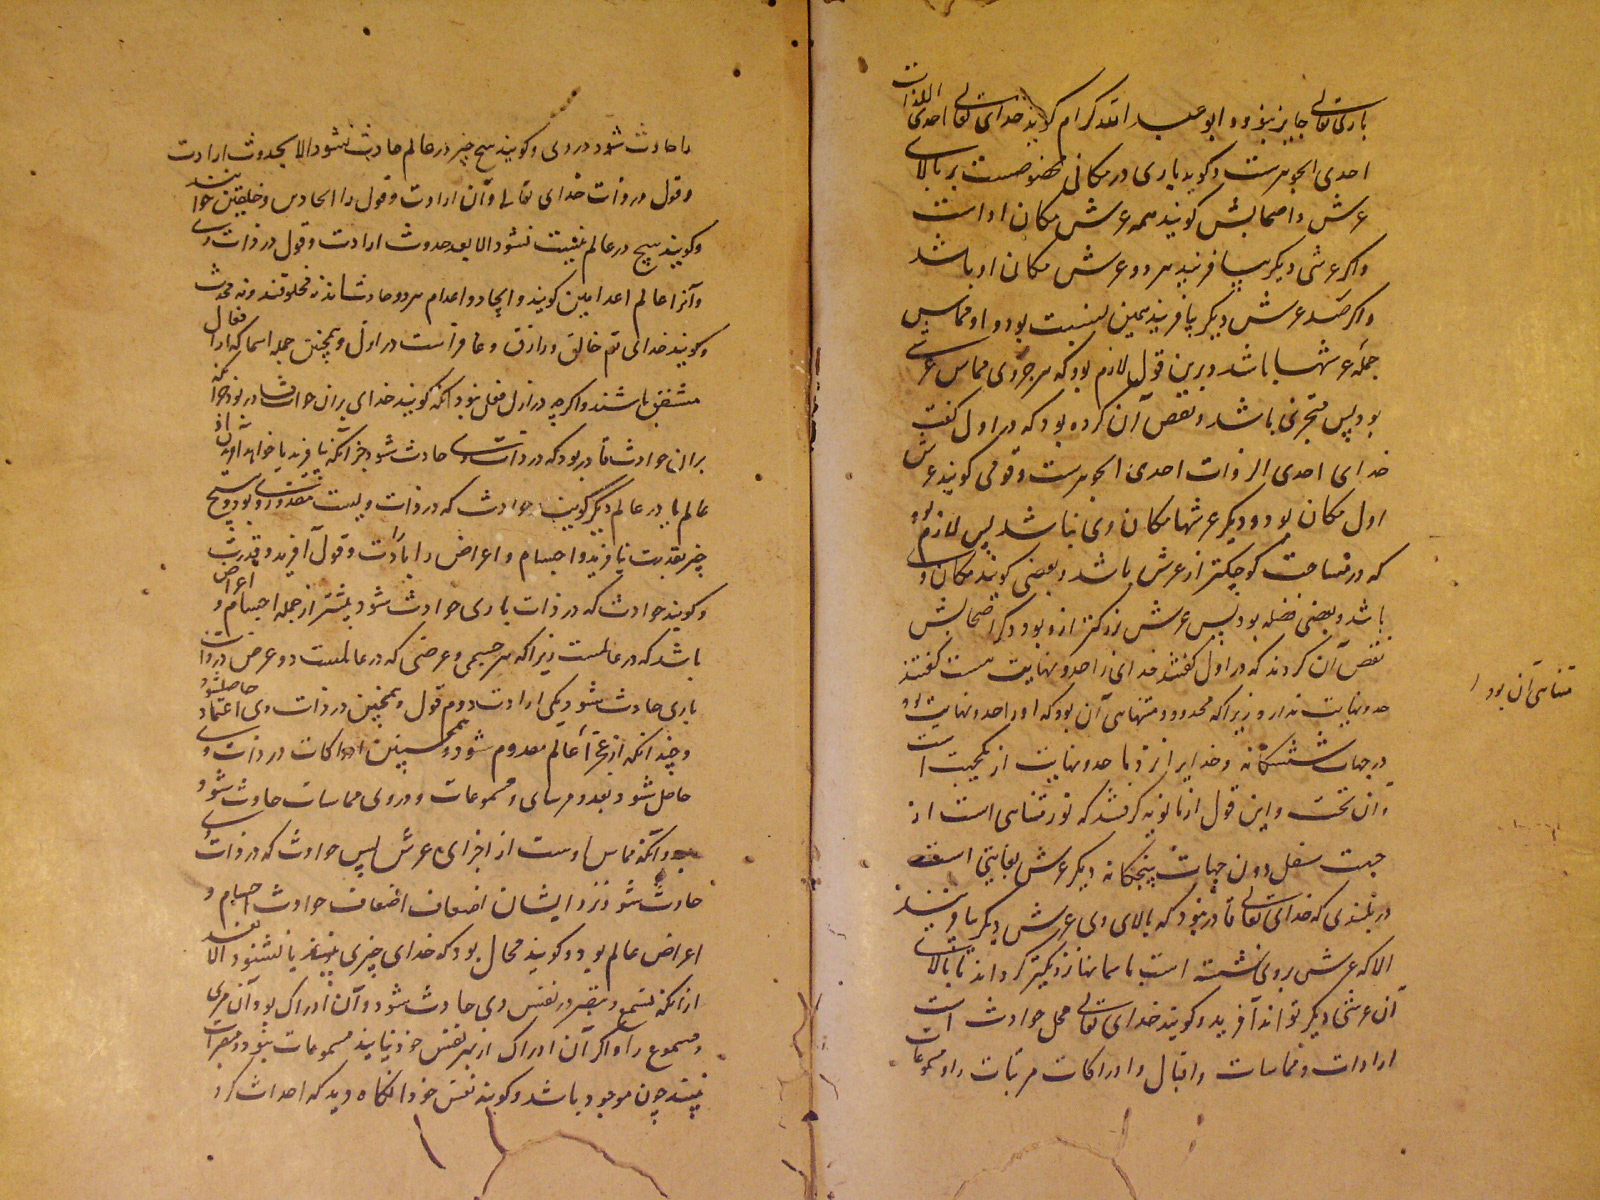 باری تعالی جایز نبود و ابو عبد الله کرام گوید خدای تعالی احدی الذات
احدی الجوهرست و گوید باری در مکانی مخصوصست بر بالای
عرش و اصحابش گویند همه عرش مکان او است
و اگر عرشی دیگر بیافریند هر دو عرش مکان او باشد
و اگر صد عرش دیگر بیافریند همین نسبت بود و او مماس
جمله عرشها باشد و برین قول لازم بود که هر جزوی مماس عرشی
بود پس متجزی باشد و نقض آن کرده بود که در اول گفت
خدای احدی الذات احدی الجوهرست و قومی گویند عرش
اول مکان بود و دیگر عرشها مکان وی نباشد پس لازم بود
که در مساحت کوچکتر از عرش باشد و بعضی گویند مکان وی
باشد و بعضی فضله بود پس عرش بزرگتر ازو بود و دیگر اصحابش
نقض آن کردند که در اول گفتند خدای را حد و نهایت هست گفتند
حد و نهایت ندارد زیرا که محدود و متناهی آن بود که او را حد و نهایت بود
در جهات ششگانه و خدایرا نزد ما حد و نهایت از یکجهت است
و آن تحت و این قول از مانویه گرفتند که نور متناهی است از
جهت سفل دون جهات پنجگانه دیگر عرش بغایتی است
در بلندی که خدای تعالی قادر نبود که بالای وی عرش دیگر بیافریند
الا که عرش بروی نشسته است باسمانها نزدیکتر گرداند تا بالای
آن عرشی دیگر تواند آفرید و گویند خدای تعالی محل حوادث است
ارادات و مماسات و اقبال و ادراکات مرئیات را و مسموعات
متناهی آن بود
را حادث شود در وی و گویند هیچ چیز در عالم حادث نشود الا بحدوث ارادت
و قول در ذات خدای تعالی و آن ارادت و قول را خوانند
و گویند هیچ در عالم نیست نشود الا بعد حدوث ارادت و قول در ذات وی
و آنرا عالم اعدامین گویند و ایجاد و اعدام هر دو حادث اند نه مخلوقند و نه محدث
و گویند خدای تعالی خالق و رازق و غافرست در ازل و همچنین جمله اسما که از افعال
مشتق باشند و اگر چه در ازل فعل نبود آنکه گویند خدای بر آن حوادث قادر بود
بر آن حوادث قادر بود که در ذات وی حادث شود جز آنکه بیافریند یا خواهد آفرید از
عالم یا در عالم دیگر گویند حوادث که در ذات ویست مقدور وی بود و هیچ
چیز بقدرت نیافرید و اجسام و اعراض را بارادت و قول آفرید و قدرت
و گویند حوادث که در ذات باری حوادث شود بیشتر از جمله اجسام و اعراض
باشد که در عالمست زیرا که هر جسمی و عرضی که در عالمست دو عرض در ذات
باری حادث شود یکی ارادت دوم قول و همچنین در ذات وی اعتماد حاصل شود
و چندانکه از عالم معدوم شود و همچنین ادراکات در ذات وی
حاصل شود بعدد مرئیات و مسموعات و در وی مماسات حادث شود
بعدد آنکه مماس اوست از اجزای عرش پس حوادث که در ذات وی
حادث شود نزد ایشان اضعاف اضعاف حوادث اجسام و
اعراض عالم بود و گویند محال بود که خدای چیزی بیند یا بشنود الا بعد
از آنکه تسمع و تبصر در نفس وی حادث شود و آن ادراک بود آن مرئی
و مسموع را و اگر آن ادراک از بهر نفس خود نیافریند مسموعات نشنود و مبصرات
نبیند چون موجود باشد و گویند نفس خود آنگاه دید که احداث کرد